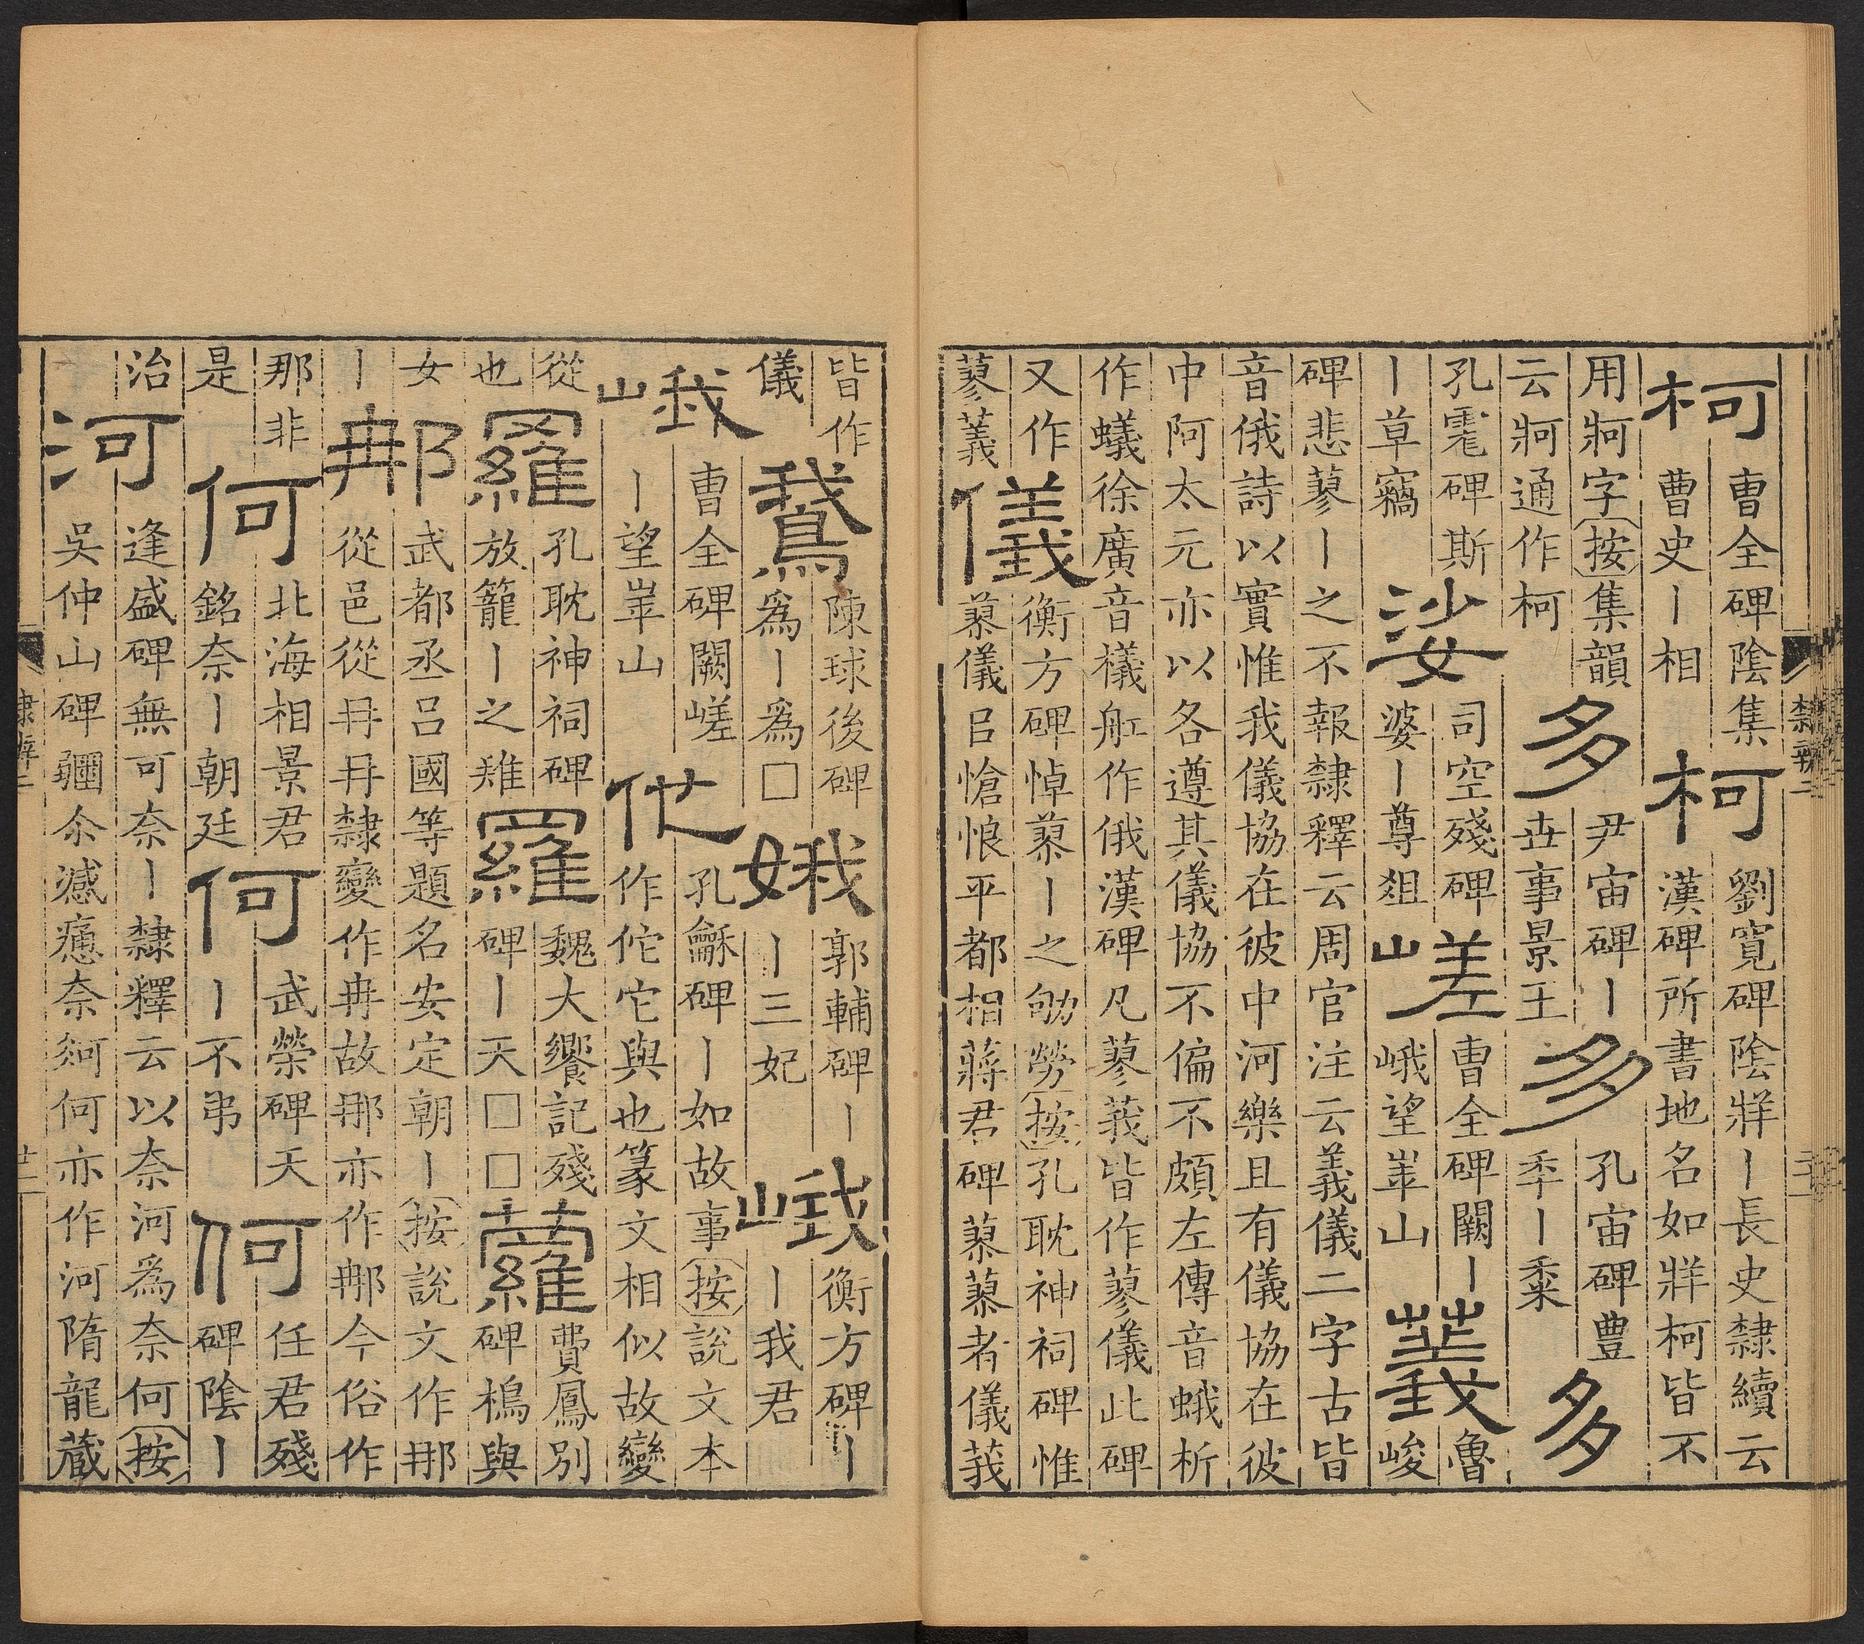 柯
曹全碑陰集
曹史ー相
柯
劉寬碑陰牂ー長史隸續云
漢碑所書地名如牂柯皆不
用牁字按集韻
云牁通作柯
多
尹宙碑ー
丗事景王
多
孔宙碑豊
秊ー黍
多
孔碑斯
ー草竊
娑
司空殘碑
婆ー尊俎
嵯
曹全碑闕ー
峨望崋山
魯
峻
碑悲蓼ー之不報隸釋云周官注云義儀二字古皆
音俄詩以實惟我儀協在彼中河樂且有儀協在彼
中阿太元亦以各遵其儀協不偏不頗左傳音蛾析
作蟻徐廣音檥舡作俄漢碑凡蓼莪皆作蓼儀此碑
又作
蓼
儀
衡方碑悼蓼ー之劬勞按孔耽神祠碑惟
蓼儀㠯愴悢平都相蔣君碑蓼蓼者儀莪
皆作
儀
鵞
陳球後碑
爲ー爲□
娥
郭輔碑ー
ー三妃
峨
衡方碑ー
ー我君
峨
曹全碑闕嵯
ー望崋山
佗
孔龢碑ー如故事按說文本
作佗它與也篆文相似故變
從
也
羅
孔耽神祠碑
放籠ー之雉
羅
魏大饗記殘
碑ー天□□
蘿
費鳳別
碑樢與
女
ー
那
武都丞呂國等題名安定朝ー按說文作𨙻
從邑從冄冄隸變作冉故𨙻亦作𨚗今俗作
那非
是
何
北海相景君
銘奈ー朝廷
何
武榮碑天
ー不弔
何
任君殘
碑陰ー
治
河
逢盛碑無可奈ー隸釋云以奈河爲奈何按
吳仲山碑奈何亦作河隋龍藏
隸辨二